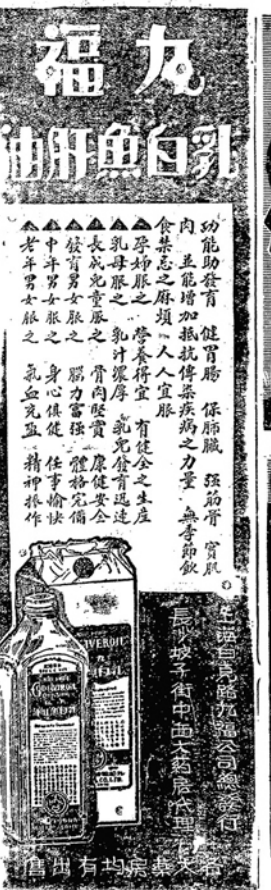 九福
乳白魚肝油
功能助發育 健胃腸 保肺臟 强筋骨 實肌
肉 並能增加抵抗傳染疾病之力量 無季節飲
食禁忌之麻煩 人人宜服
▲孕婦服之 營養得宜 有健全之生產
▲乳母服之 乳汁濃厚 乳兒發育迅速
▲長成兒童服之 骨肉堅實 康健安全
▲發育男女服之 腦力富强 體格完備
▲中年男女服之 身心俱健 任事愉快
▲老年男女服之 氣血充盈 精神振作
上海白克路九福公司總發行
長沙坡子街中西大药房代理
各大藥房均有出售